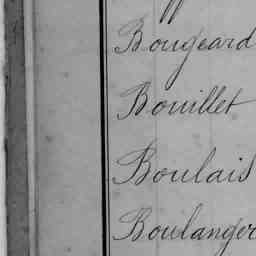 Bougeard
Bouillet
Boulais
Boulanger